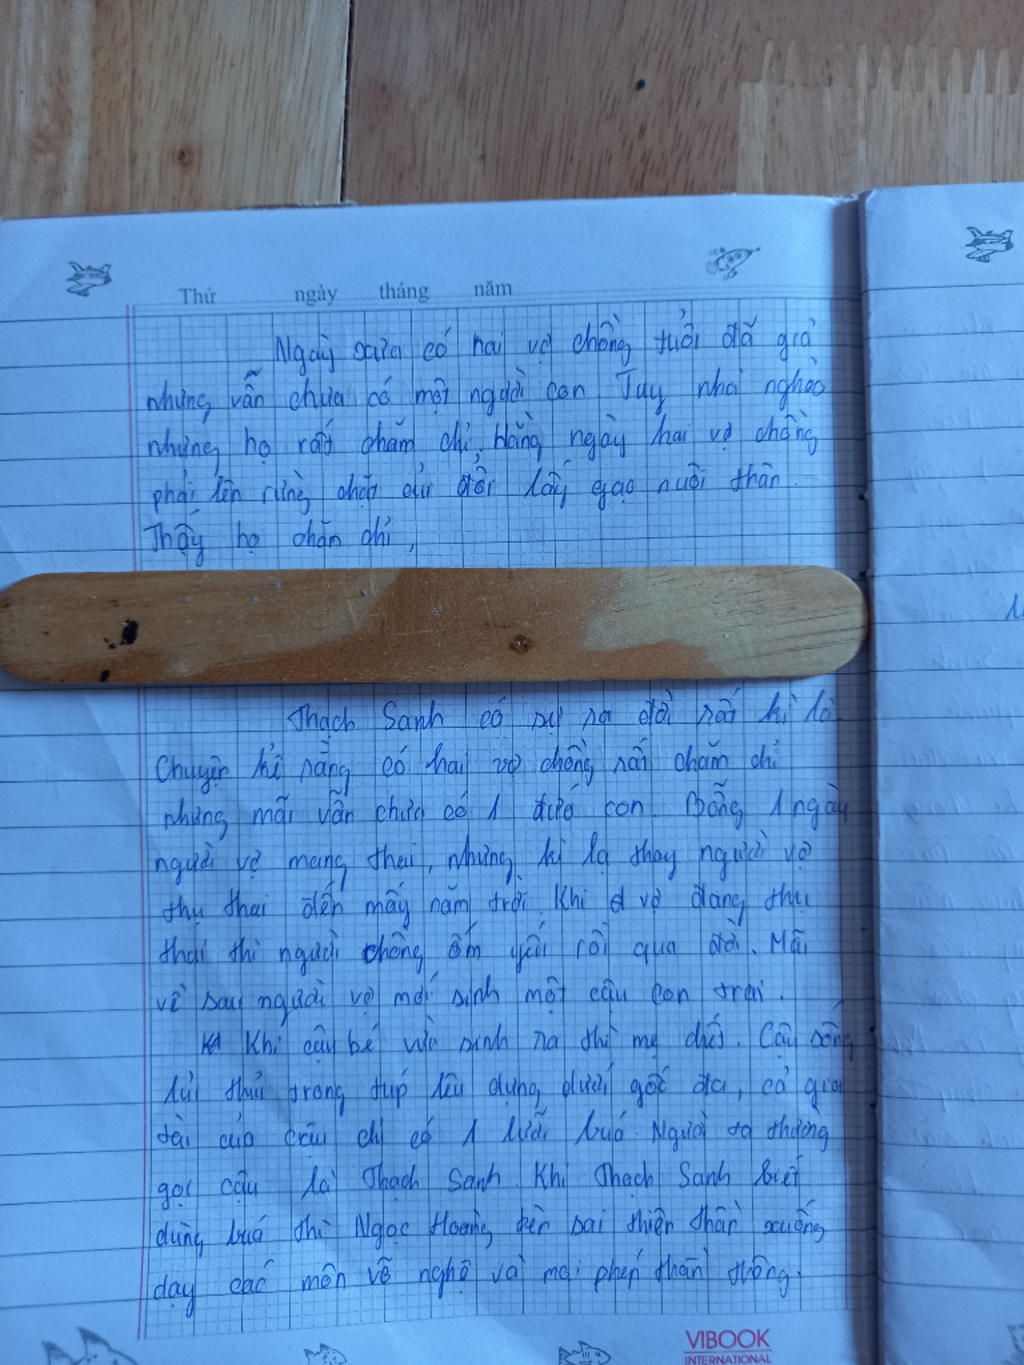 Thứ ngày tháng năm
Ngày xưa có hai vợ chồng tuổi đã già
nhưng vẫn chưa có một người con Tuy nhà nghèo
nhưng họ rất chăm chỉ. Hằng ngày hai vợ chồng
phải lên rừng chặt củi đổi lấy gạo nuôi thân.
Thấy họ chăn chỉ,
Thạch Sanh có sự ra đời rất kì lạ
Chuyện kể rằng có hai vợ chồng rất chăm chỉ
nhưng mãi vẫn chưa có 1 đứa con. Bỗng 1 ngày
người vợ mang thai, nhưng kì lạ thay người vợ
thụ thai đến mấy năm trời. Khi vợ đang thụ
thai thì người chồng ốm yếu rồi qua đời. Mãi
về sau người vợ mới sinh một cậu con trai.
Khi cậu bé vừa sinh ra thì mẹ chết. Cậu sống
lủi thủi trong túp lều dựng dưới gốc đa, cả gia
tài của cậu chỉ có 1 lưỡi búa. Người ta thường
gọi cậu là Thạch Sanh. Khi Thạch Sanh biết
dùng búa thì Ngọc Hoàng sai thiên thần xuống
dạy các môn võ nghệ và mọi phép thần thông.
VIBOOK
INTERNATIONAL